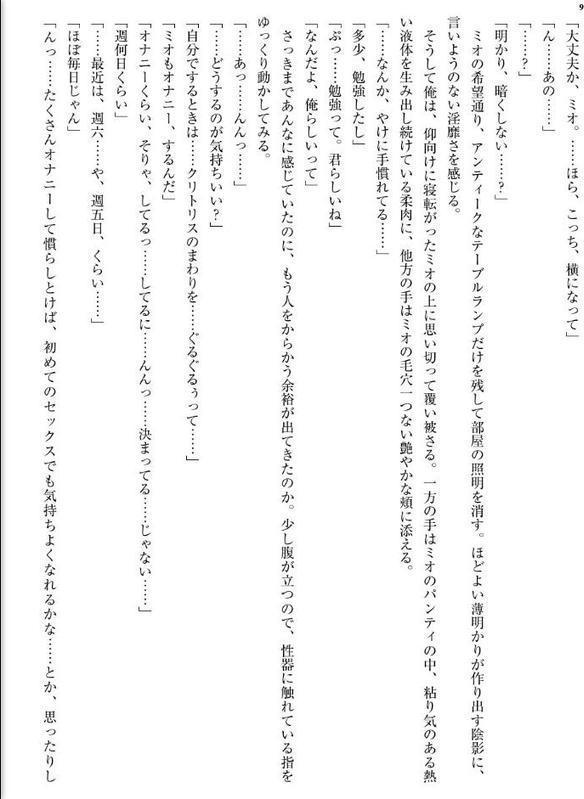 9
「大丈夫か、ミオ。……ほら、こっち、横になって」
「ん……あの……」
「……？」
「明かり、暗くしない……？」
ミオの希望通り、アンティークなテーブルランプだけを残して部屋の照明を消す。ほどよい薄明かりが作り出す陰影に、
言いようのない淫靡さを感じる。
そうして俺は、仰向けに寝転がったミオの上に思い切って覆い被さる。一方の手はミオのパンティの中、粘り気のある熱
い液体を生み出し続けている柔肉に、他方の手はミオの毛穴一つない艶やかな頬に添える。
「……なんか、やけに手慣れてる……」
「多少、勉強したし」
「ぷっ……勉強って。君らしいね」
「なんだよ、俺らしいって」
さっきまであんなに感じていたのに、もう人をからかう余裕が出てきたのか。少し腹が立つので、性器に触れている指を
ゆっくり動かしてみる。
「……あっ……んんっ……」
「……どうするのが気持ちいい？」
「自分でするときは……クリトリスのまわりを……ぐるぐるぅって……」
「ミオもオナニー、するんだ」
「オナニーくらい、そりゃ、してるっ……してるに……んんっ……決まってる……じゃない……」
「週何日くらい」
「……最近は、週六……や、週五日、くらい……」
「ほぼ毎日じゃん」
「んっ……たくさんオナニーして慣らしとけば、初めてのセックスでも気持ちよくなれるかな……とか、思ったりし